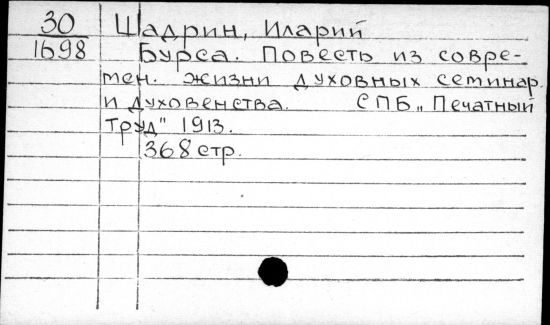 30 Шадрин, Иларий
1698 Бурса. Повесть из совре-
мен. жизни духовных семинар.
и духовенства. СПБ „Печатный
труд" 1913.
368 стр.